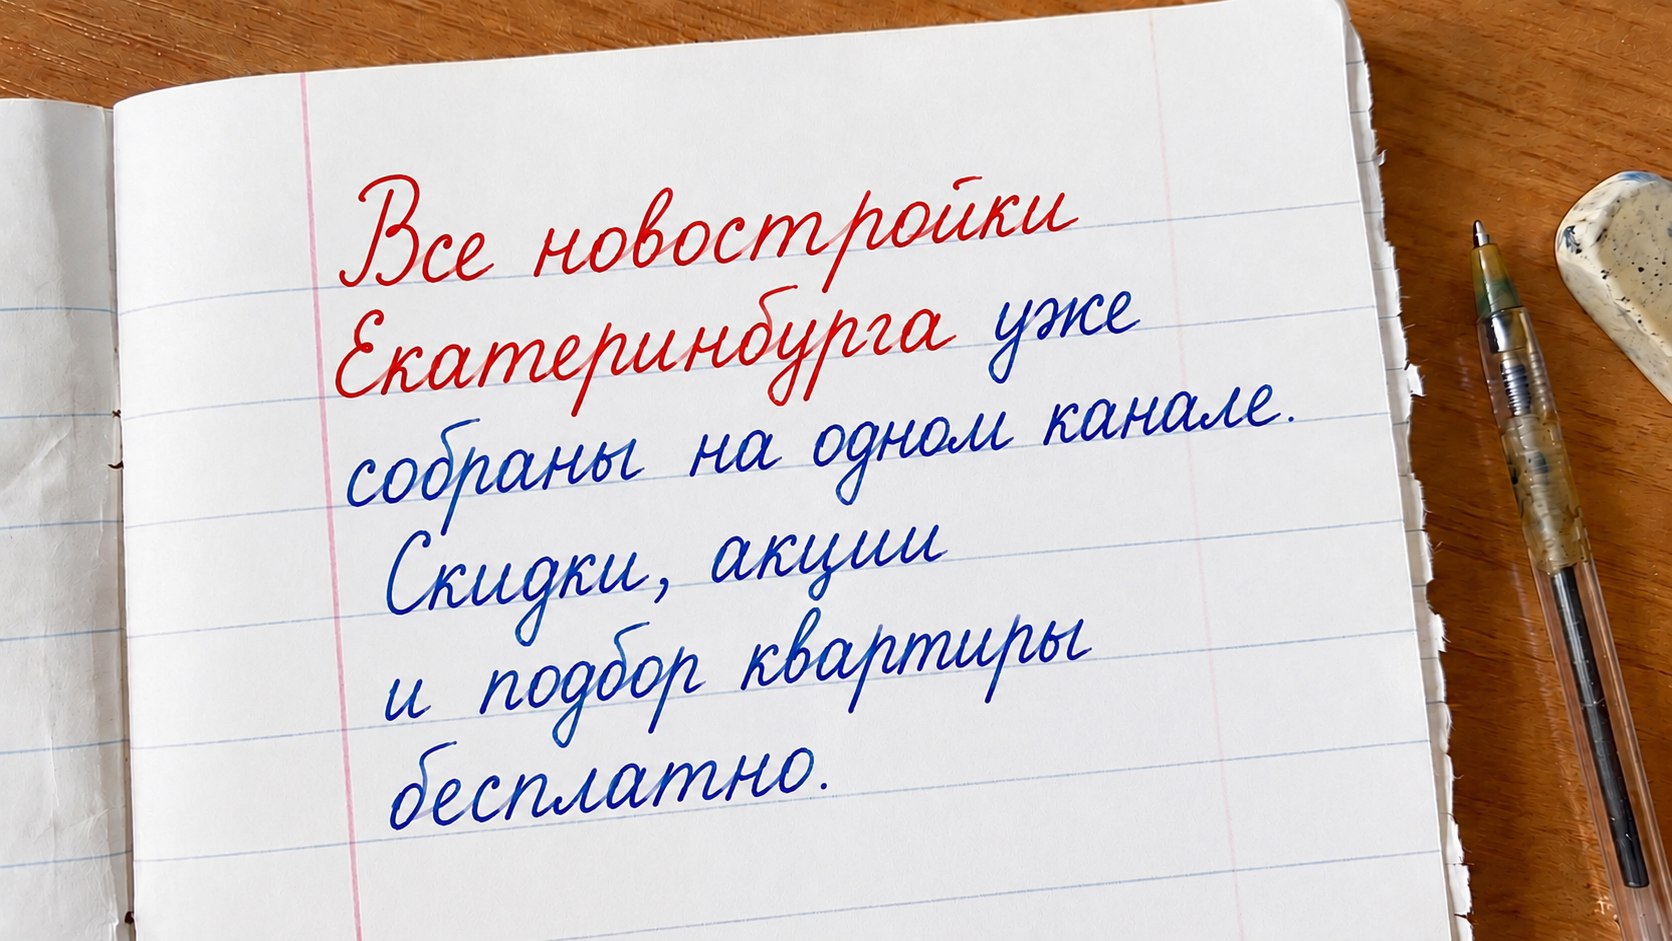 Все новостройки
Екатеринбурга уже
собраны на одном канале.
Скидки, акции
и подбор квартиры
бесплатно.